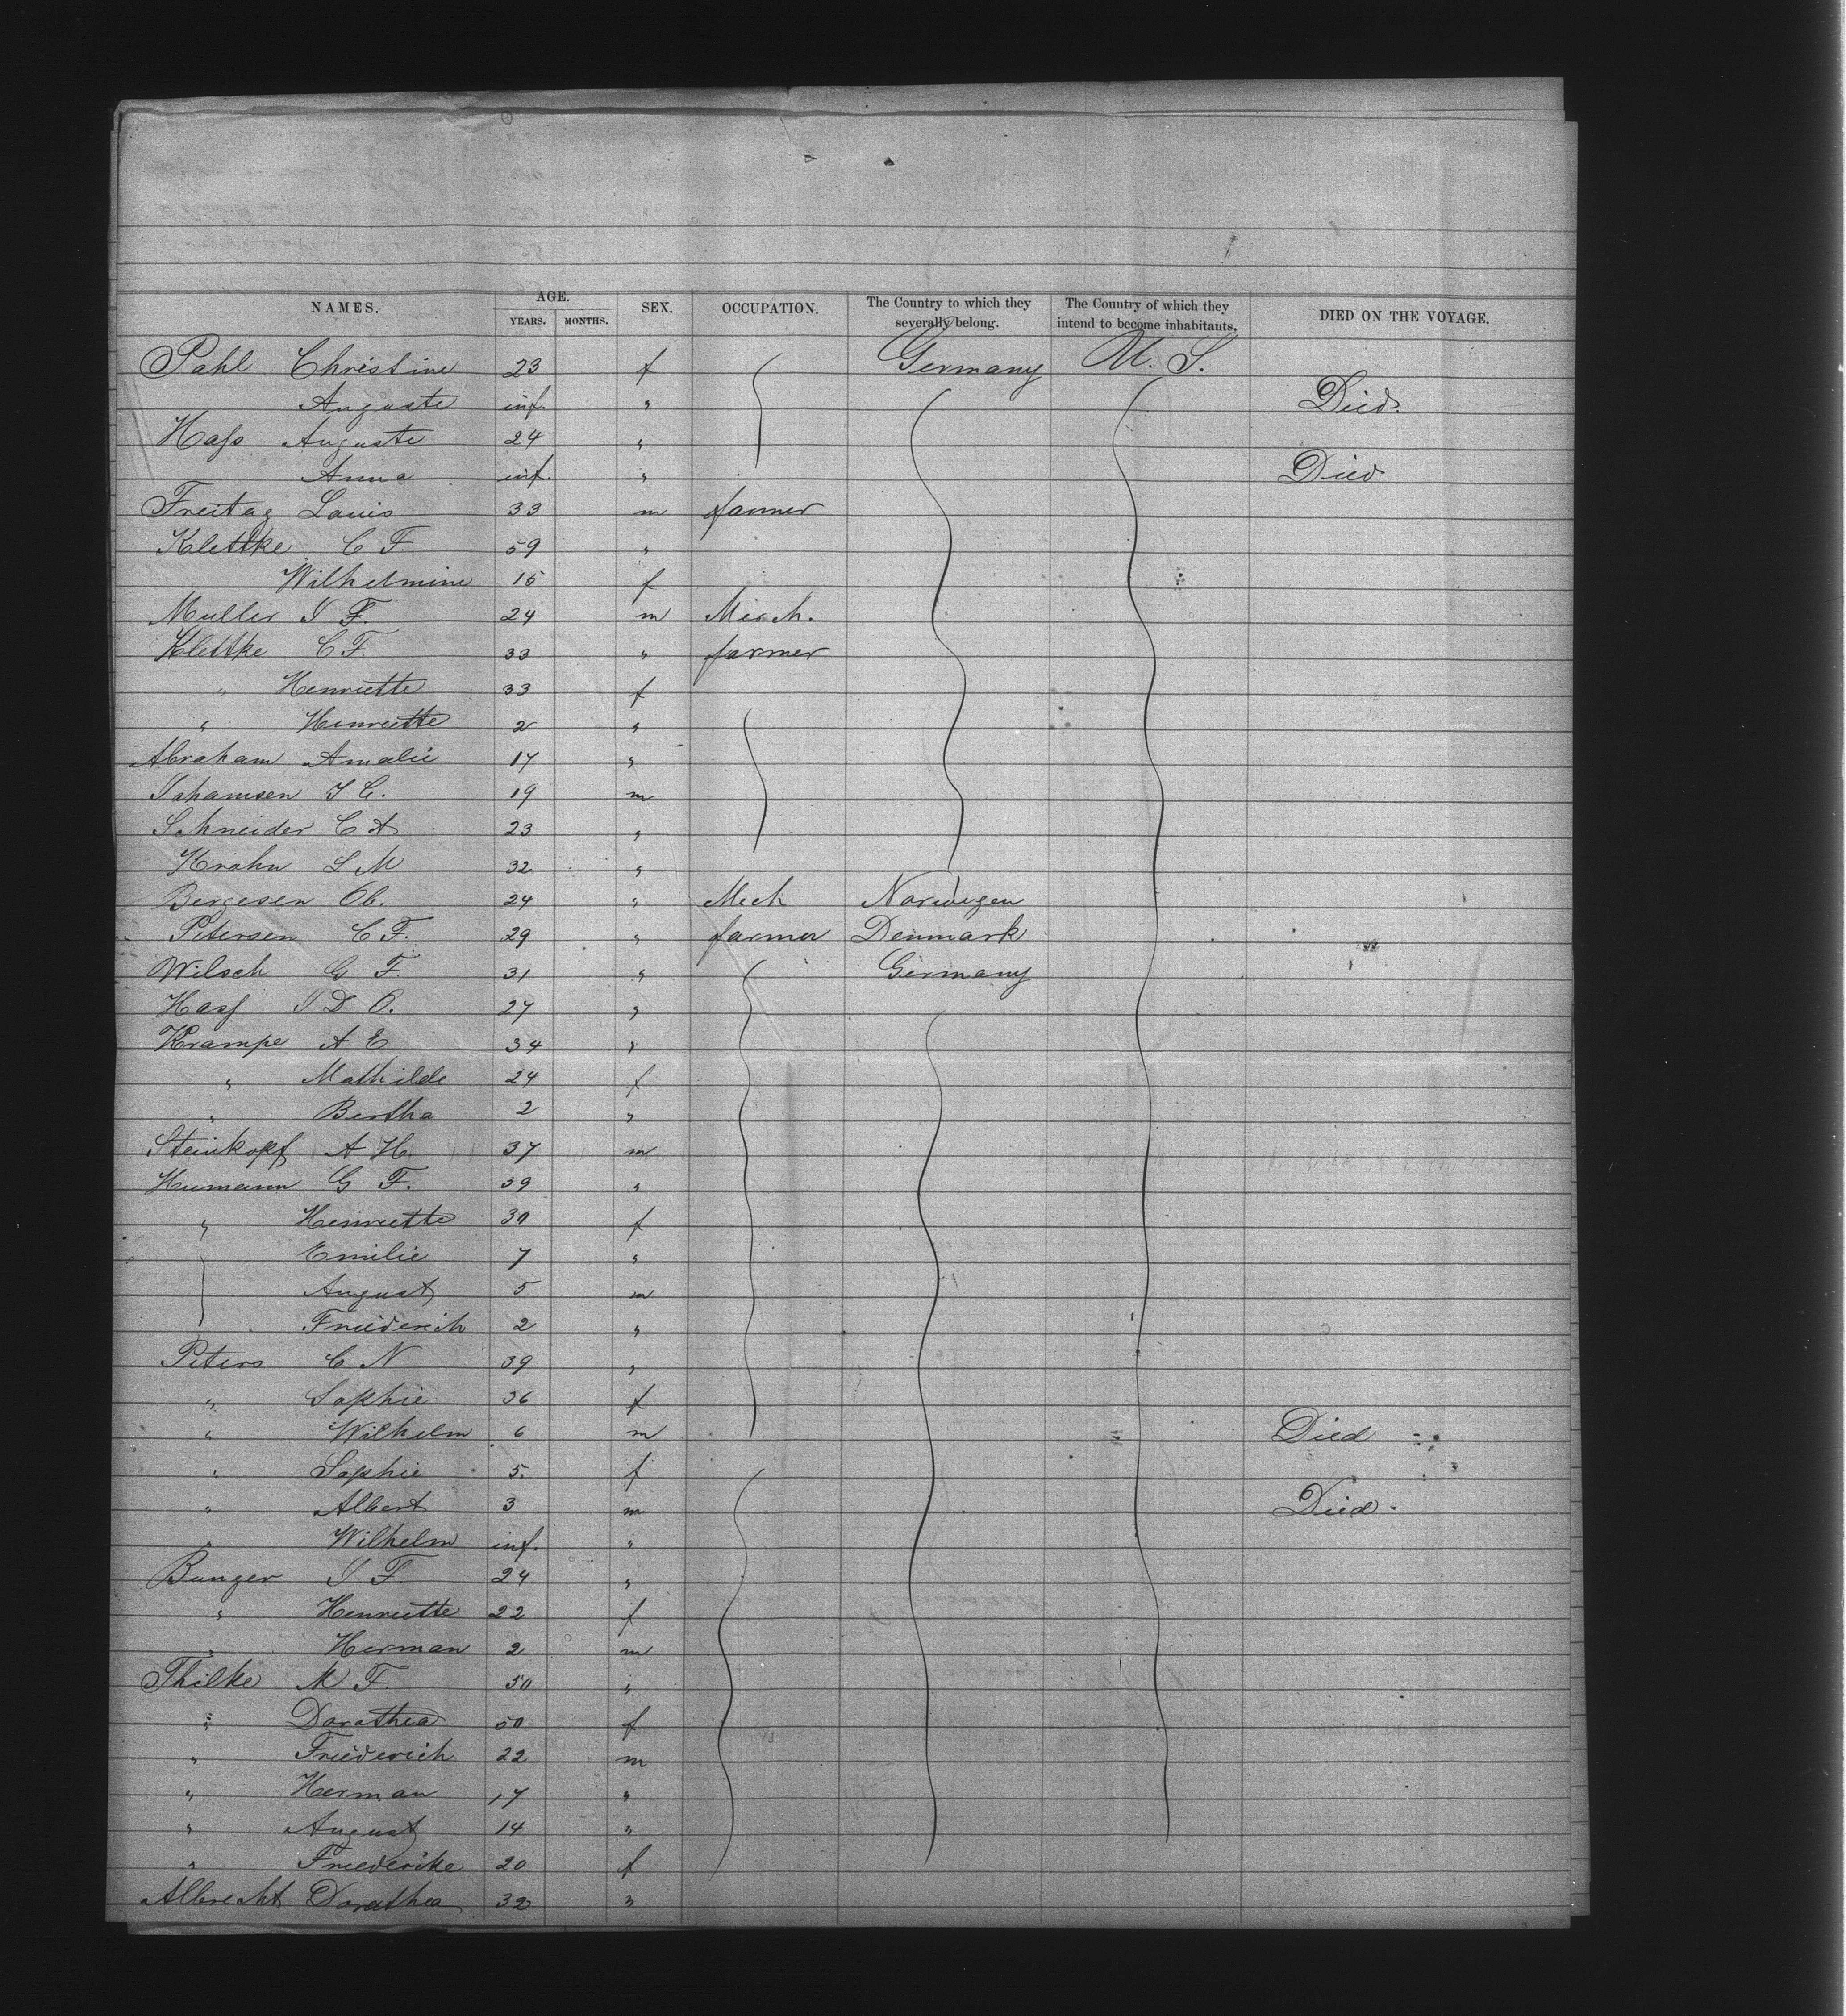 NAMES. AGE. SEX. OCCUPATION. The Country to which they severally belong. The Country of which they intend to become inhabitants. DIED ON THE VOYAGE.
YEARS. MONTHS.
Pahl Christine 23 f Germany U. S.
Auguste inf. " Died.
Hass Auguste 24 "
Anna inf. " Died
Freitag Louis 33 m farmer
Klettke C F 59 "
Wilhelmine 15 f
Muller J F. 24 m Mech.
Klettke C F 33 " farmer
" Henriette 33 f
" Henriette 2 "
Abraham Amalie 17 "
Johannsen J C. 19 m
Schneider C A 23 "
Krahn L M 32 "
Bergesen Ob. 24 " Mech Norwegen
Petersen C F. 29 " farmer Denmark
Wilsch G F. 31 " Germany
Hass J D O. 27 "
Krampe A E 34 "
" Mathilde 24 f
" Bertha 2 "
Steinkopf A H. 37 m
Humann G F. 39 "
" Henriette 30 f
Emilie 7 "
August 5 m
Friederich 2 "
Peters C N 39 "
" Sophie 36 f
" Wilhelm 6 m Died
" Sophie 5. f
" Albert 3 m Died.
" Wilhelm inf. "
Bunger J F. 24 "
" Henriette 22 f
" Herman 2 m
Thilke M F. 50 "
" Dorathea 50 f
" Friederich 22 m
" Herman 17 "
" August 14 "
" Friederike 20 f
Albrecht Dorathea 32 "